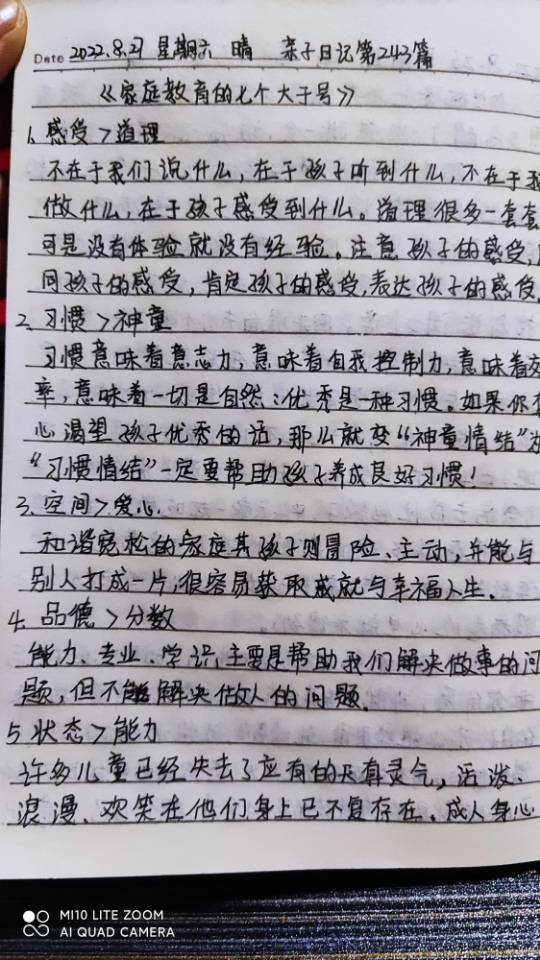 Date 2022.8.27 星期六 晴 亲子日记第243篇
《家庭教育的七个大于号》
1、感受>道理
不在于我们说什么,在于孩子听到什么,不在于我
做什么,在于孩子感受到什么。道理很多一套套
可是没有体验就没有经验。注意孩子的感受,
同孩子的感受,肯定孩子的感受,表达孩子的感受。
2、习惯>神童
习惯意味着意志力,意味着自我控制力,意味着效
率,意味着一切是自然;优秀是一种习惯。如果你
心渴望孩子优秀的话,那么就变“神童情结”为
“习惯情结”一定要帮助孩子养成良好习惯!
3、空间>爱心
和谐宽松的家庭其孩子则冒险、主动,并能与
别人打成一片,很容易获取成就与幸福人生。
4、品德>分数
能力、专业、学识,主要是帮助我们解决做事的问
题,但不能解决做人的问题。
5、状态>能力
许多儿童已经失去了应有的天真灵气,活泼、
浪漫、欢笑在他们身上已不复存在。成人身心
MI10 LITE ZOOM
AI QUAD CAMERA